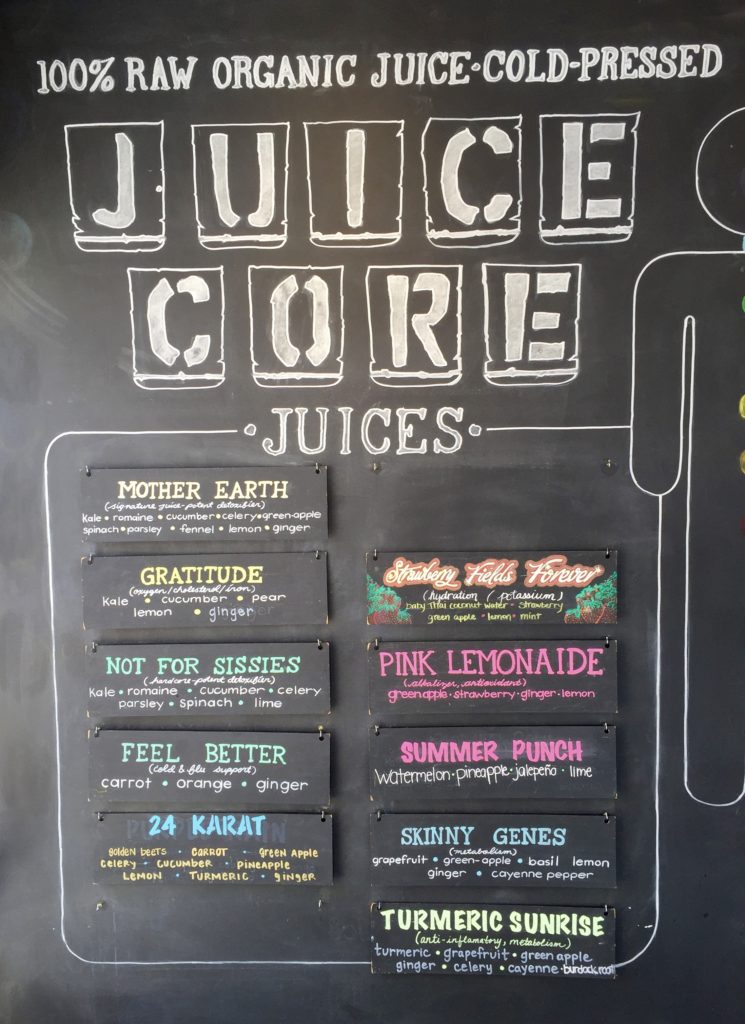 100% RAW ORGANIC JUICE•COLD-PRESSED
JUICE
CORE
•JUICES•
MOTHER EARTH
(signature juice-potent detoxifier)
Kale • romaine • cucumber • celery • green-apple
spinach • parsley • fennel • lemon • ginger
GRATITUDE
(oxygen/cholesterol/iron)
Kale • cucumber • pear
lemon • ginger
NOT FOR SISSIES
(hardcore-potent detoxifier)
Kale • romaine • cucumber • celery
parsley • spinach • lime
FEEL BETTER
(cold & flu support)
carrot • orange • ginger
24 KARAT
golden beets • CARROT - Green Apple
Celery - CUCUMBER • PINEAPPLE
LEMON • TURMERIC • GINGER
Strawberry Fields Forever
(hydration / potassium)
baby Thai coconut water - strawberry
green apple • lemon • mint
PINK LEMONAIDE
(alkalizer, antioxidant)
green apple • strawberry • ginger • lemon
SUMMER PUNCH
Watermelon • pineapple • jalepeño • lime
SKINNY GENES
(metabolism)
grapefruit • green-apple • basil lemon
ginger • cayenne pepper
TURMERIC SUNRISE
(anti-inflamatory, metabolism)
turmeric • grapefruit • green apple
ginger • celery • cayenne • burdock root